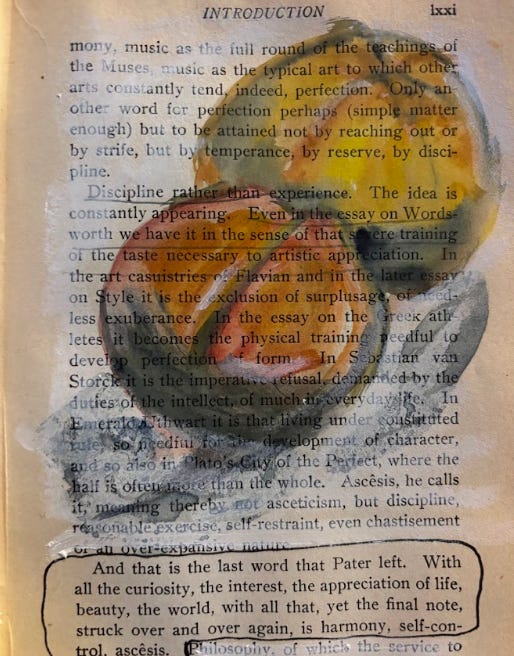 INTRODUCTION lxxi
mony, music as the full round of the teachings of
the Muses, music as the typical art to which other
arts constantly tend, indeed, perfection. Only an-
other word for perfection perhaps (simple matter
enough) but to be attained not by reaching out or
by strife, but by temperance, by reserve, by disci-
pline.
Discipline rather than experience. The idea is
constantly appearing. Even in the essay on Words-
worth we have it in the sense of that severe training
of the taste necessary to artistic appreciation. In
the art casuistries of Flavian and in the later essay
on Style it is the exclusion of surplusage, of need-
less exuberance. In the essay on the Greek ath-
letes it becomes the physical training needful to
develop perfection of form. In Sebastian van
Storck it is the imperative refusal, demanded by the
duties of the intellect, of much in everyday life. In
Emerald Uthwart it is that living under constituted
rules so needful for the development of character,
and so also in Plato's City of the Perfect, where the
half is often more than the whole. Ascêsis, he calls
it, meaning thereby not asceticism, but discipline,
reasonable exercise, self-restraint, even chastisement
of an over-expansive nature.
And that is the last word that Pater left. With
all the curiosity, the interest, the appreciation of life,
beauty, the world, with all that, yet the final note,
struck over and over again, is harmony, self-con-
trol, ascêsis. Philosophy, of which the service to